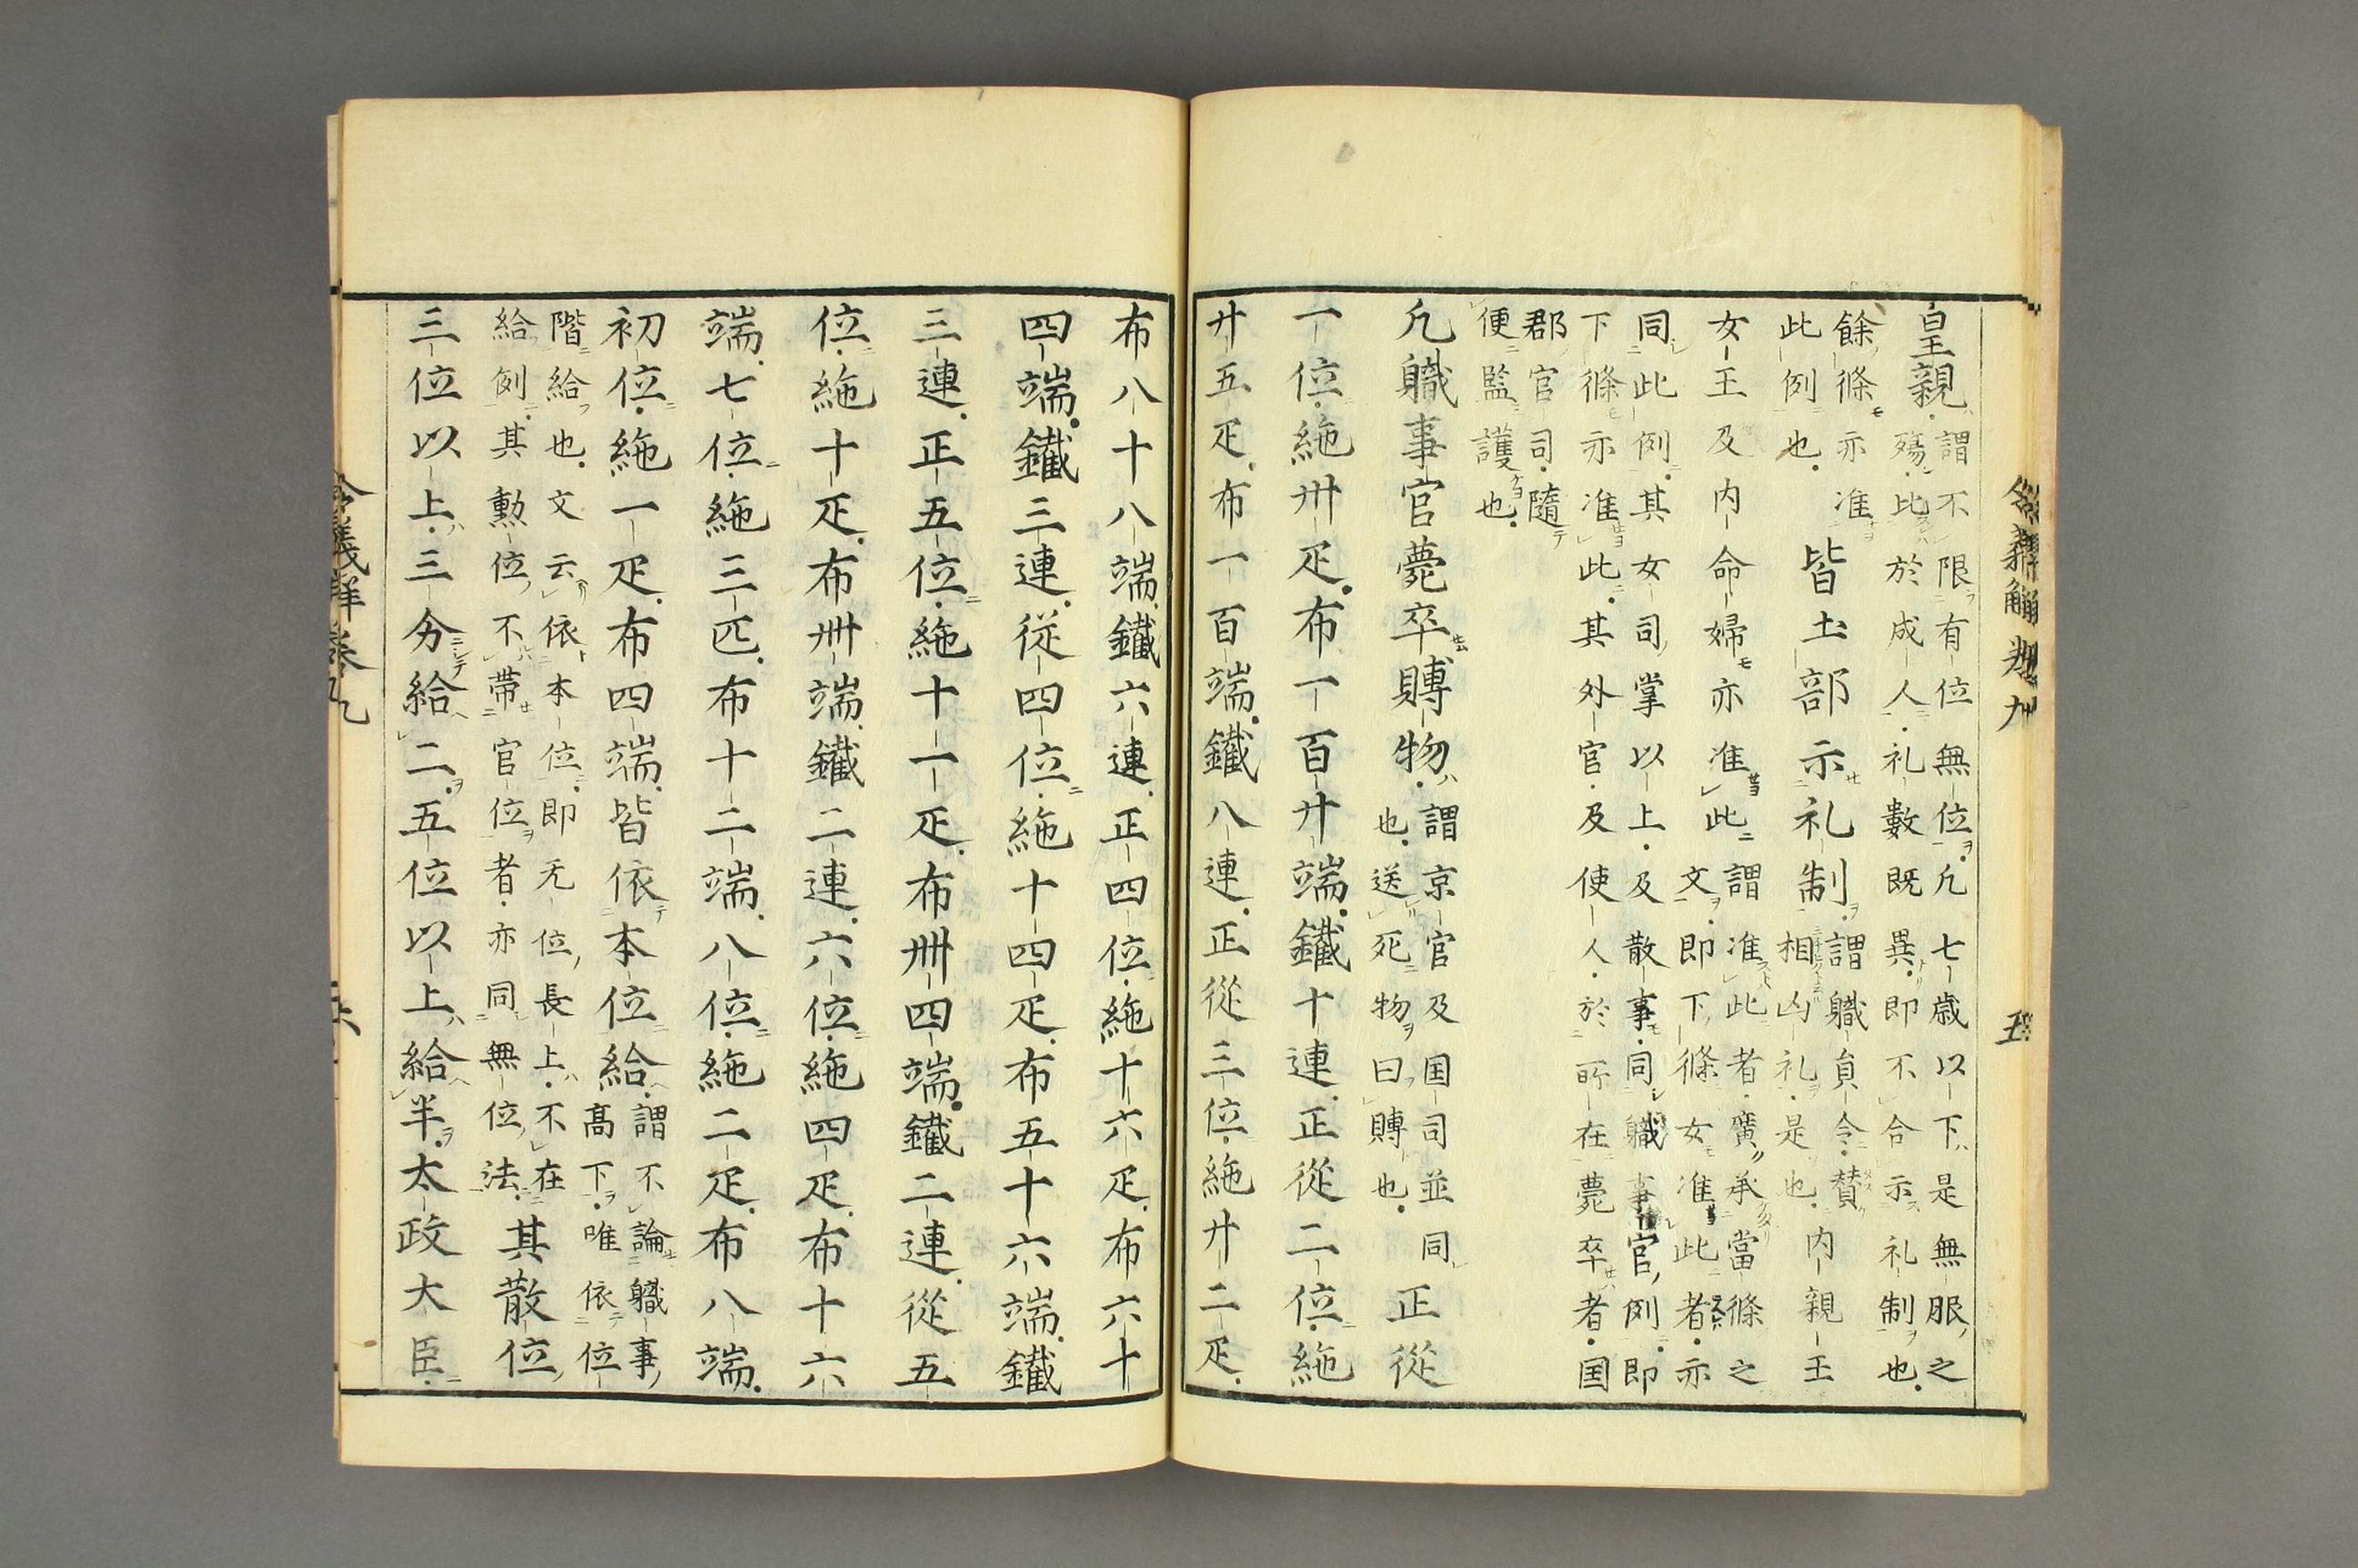 皇親謂不限有位無位凡七歳以下是無服之
殤比於成人礼數既異即不合示礼制也
餘條亦准
此例也皆土部示礼制謂職員令賛
相凶礼是也内親王
女王及内命婦亦准此謂准此者廣承當條之
文即下條女准此者亦
同此例其女司掌以上及散事同職事官例即
下條亦准此其外官及使人於所在薨卒者国
郡官司隨
便監護也
凡職事官薨卒賻物謂京官及国司並同
也送死物曰賻也正從
一位絁卅疋布一百廿端鐵十連正從二位絁
廿五疋布一百端鐵八連正從三位絁廿二疋
布八十八端鐵六連正四位絁十六疋布六十
四端鐵三連從四位絁十四疋布五十六端鐵
三連正五位絁十一疋布卌四端鐵二連從五
位絁十疋布卌端鐵二連六位絁四疋布十六
端七位絁三匹布十二端八位絁二疋布八端
初位絁一疋布四端皆依本位給謂不論職事
高下唯依位
階給也文云依本位即无位長上不在
給例其勲位不帯官位者亦同無位法其散位
三位以上三分給二五位以上給半太政大臣